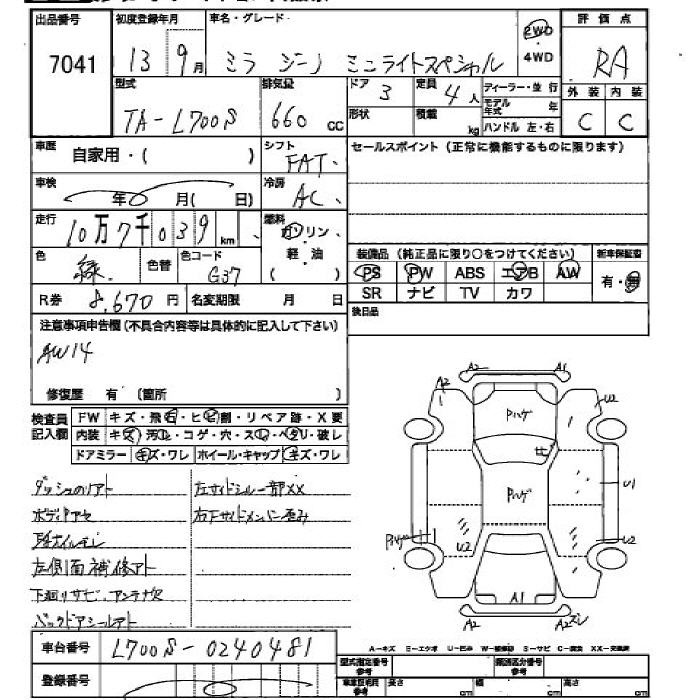 出品番号 初度登録年月 車名・グレード 評価点
7041 13 9月 ミラ ジーノ ミニライトスペシャル 2WD ・ 4WD RA
型式 排気量 ドア 定員 ディーラー・並行 外装 内装
TA-L700S 660 cc 3 4人 モデル年式 年 C C
形状 積載 kg ハンドル 左・右
車歴 自家用・( ) シフト FAT セールスポイント (正常に機能するものに限ります)
車検 年 月( 日) 冷房 AC
走行 10万7千039 km 燃料 ガソリン・軽・油 ( )
装備品 (純正品に限り○をつけてください) 新車保証書
色 緑 色替 色コード G37 PS PW ABS エアB AW 有・無
R券 8,670円 名変期限 月 日 SR ナビ TV カワ
注意事項申告欄 (不具合内容等は具体的に記入して下さい) 後日品
AW14
修復歴 有 (箇所 )
検査員記入欄 FW キズ・飛石・ヒビ割・リペア跡・X要
内装 キズ・汚レ・コゲ・穴・スレ・ヘタリ・破レ
ドアミラー キズ・ワレ ホイール・キャップ キズ・ワレ
左サイドシル一部XX
右下サイドメンバー歪み
左側面補修アト
下廻りサビ、アンテナ欠
バックドアシールアト
A2 A1
A2 U2
Pハゲ
ヒ
Pハゲ U1
U2 U2
A1
A2 A2スレ
A-キズ E-エクボ U-凹み W-補修跡 S-サビ C-腐食 XX-交換済
車台番号 L700S-0240481
型式指定番号 参考 類別区分番号 参考
登録番号 車庫証明用 参考 長さ cm 幅 cm 高さ cm